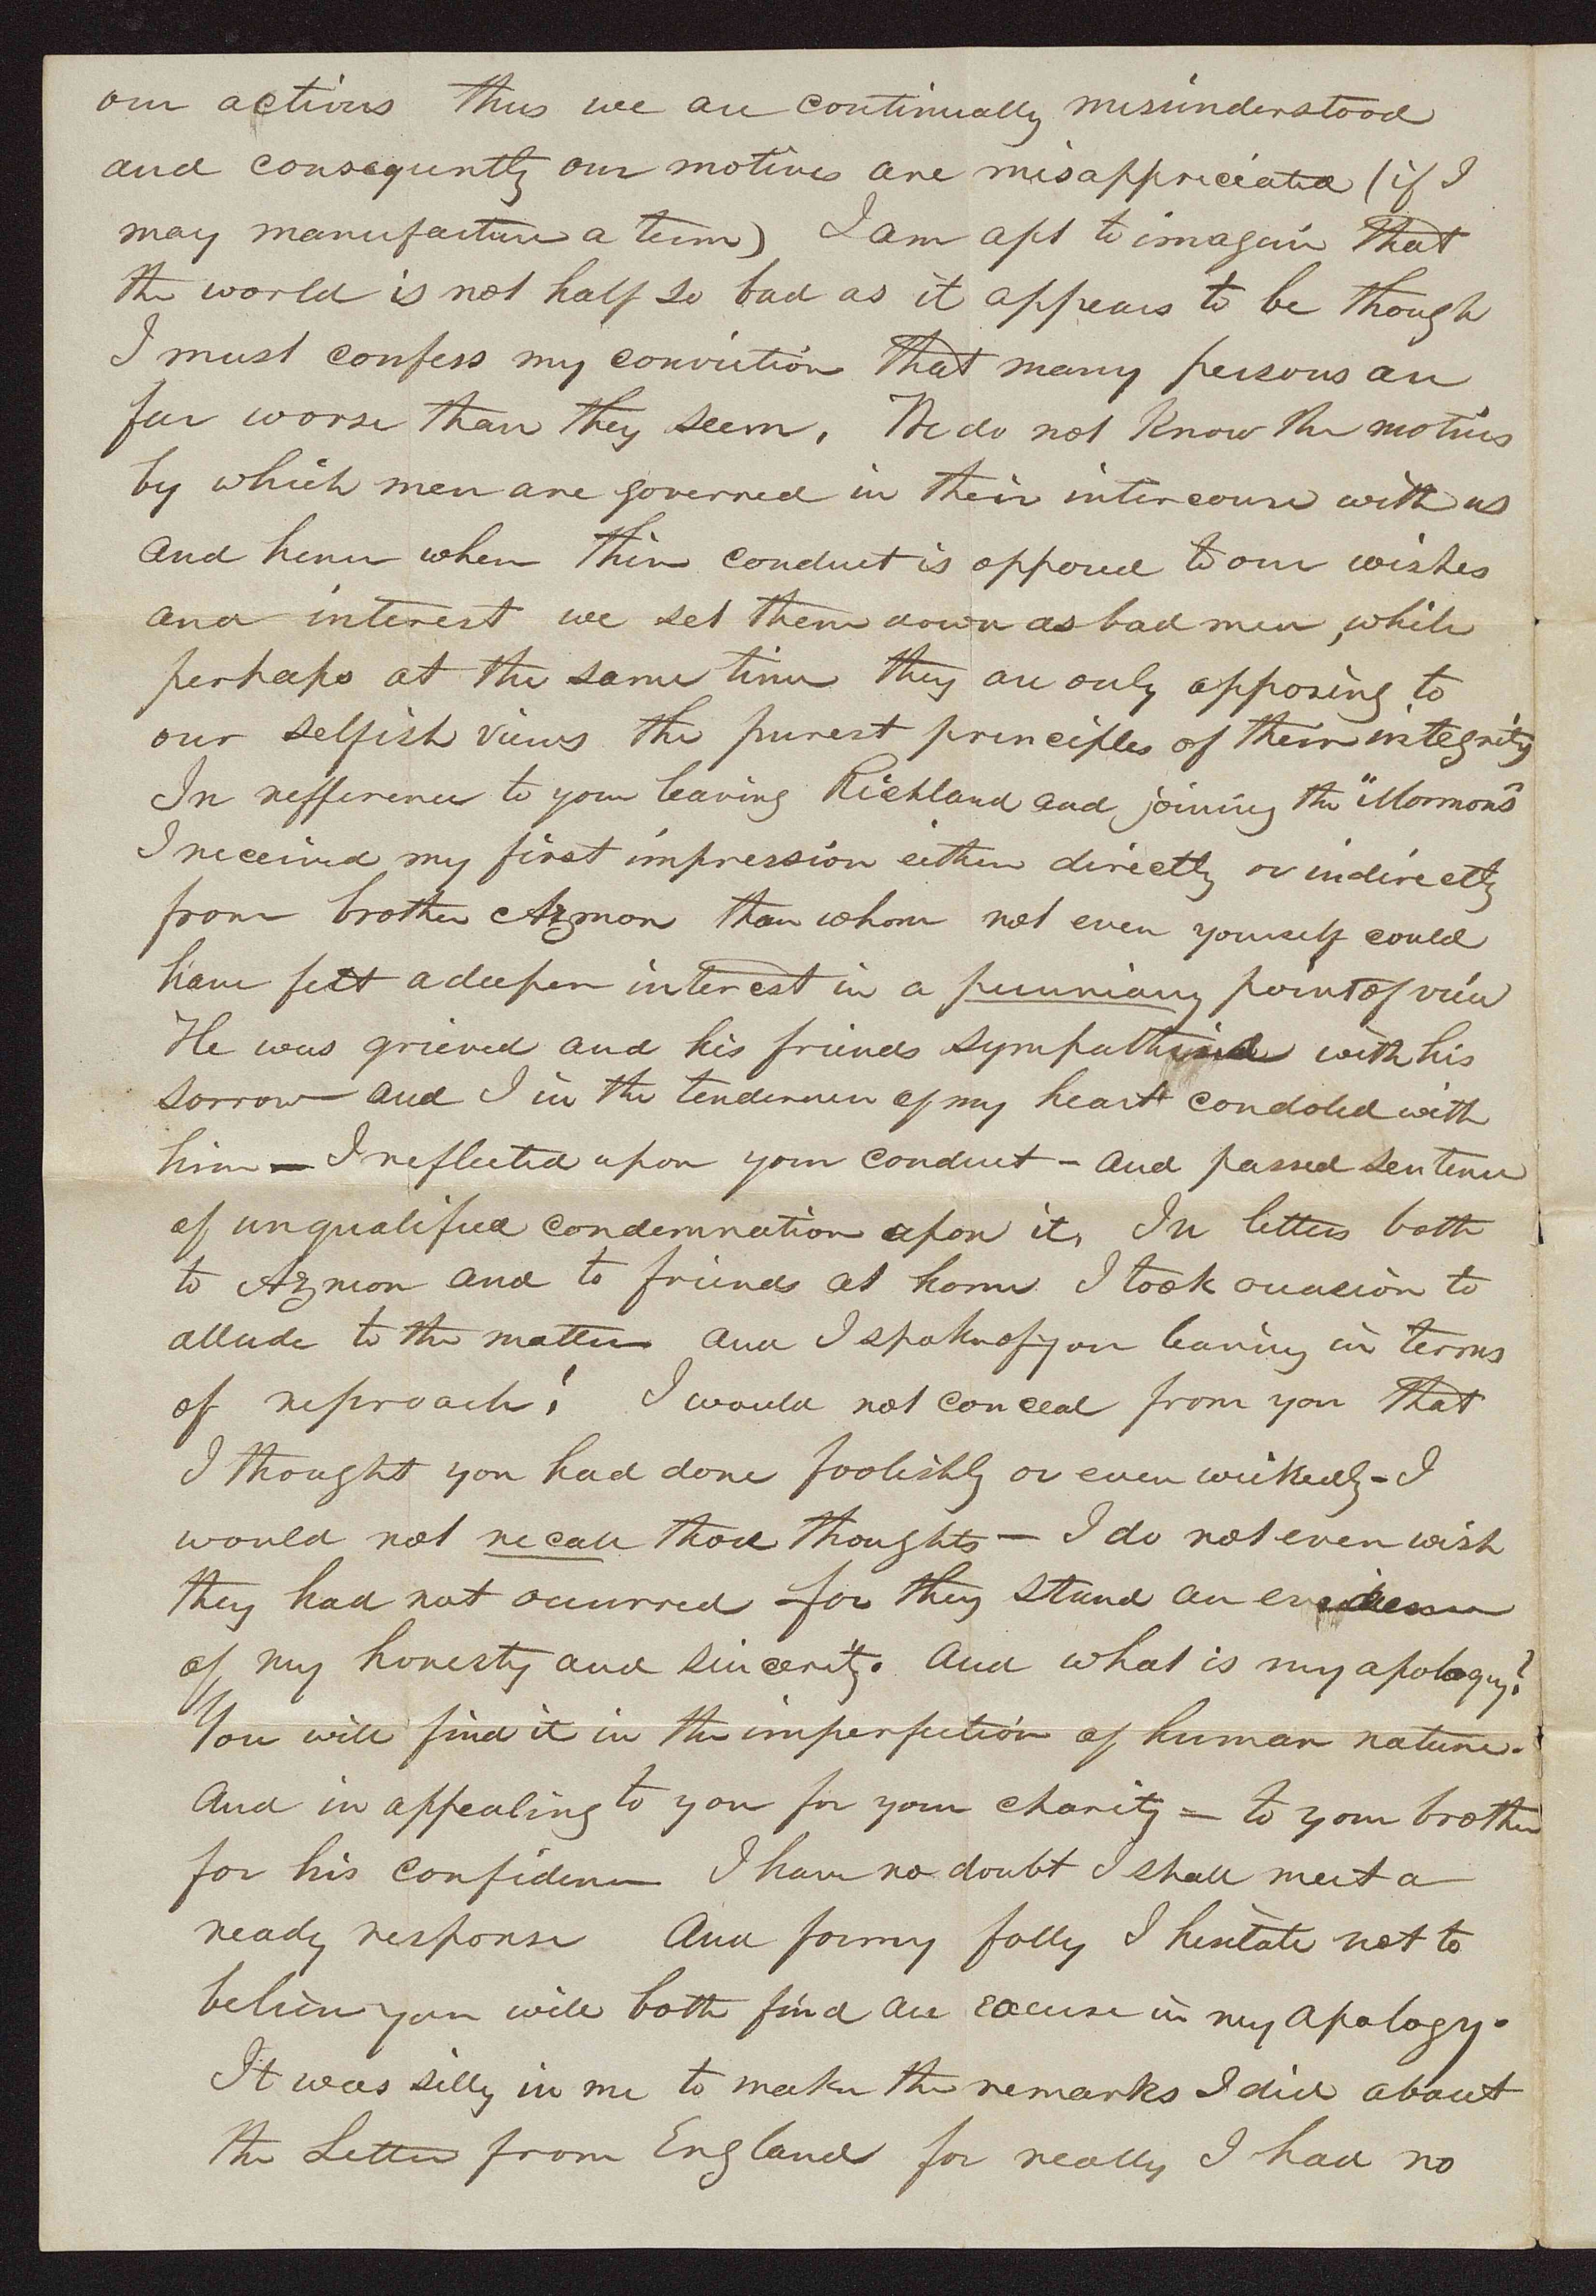 our actions thus we are continually misunderstood
and consequently our motives are misappreciated (if I
may manufacture a term) I am apt to imagein that
the world is not half so bad as it appears to be though
I must confess my conviction that many persons are
far worse than they seem. We do not know the motives
by which men are governed in their intercourse with us
and hence when their conduct is opposed to our wishes
and interest we set them down as bad men, while
perhaps at the same time they are only opposing to
our selfish views the purest principles of their integrity
In refference to your leaving Richland and joining the "Mormons"
I received my first impression either directly or indirectly
from brother Azmon than whom not even yourself could
have felt a deeper interest in a pecuniary point of view
He was grieved and his friends sympathised with his
sorrow and I in the tenderness of my heart condoled with
him — I reflected upon your conduct - and passed sentence
of unqualified condemnation upon it. In letters both
to Azmon and to friends at home I took occasion to
allude to the matter and I spoke of your leaving in terms
of reproach! I would not conceal from you that
I thought you had done foolishly or even wickedly - I
would not recall those thoughts — I do not even wish
they had not occurred - for they stand an evidence
of my honesty and sincerity. And what is my apology?
You will find it in the imperfection of human nature.
And in appealing to you for your charity = to your brother
for his confidence I have no doubt I shall meet a
ready response And for my folly I hesitate not to
believe you will both find an excuse in my apology.
It was silly in me to make the remarks I did about
the Letter from England for really I had no